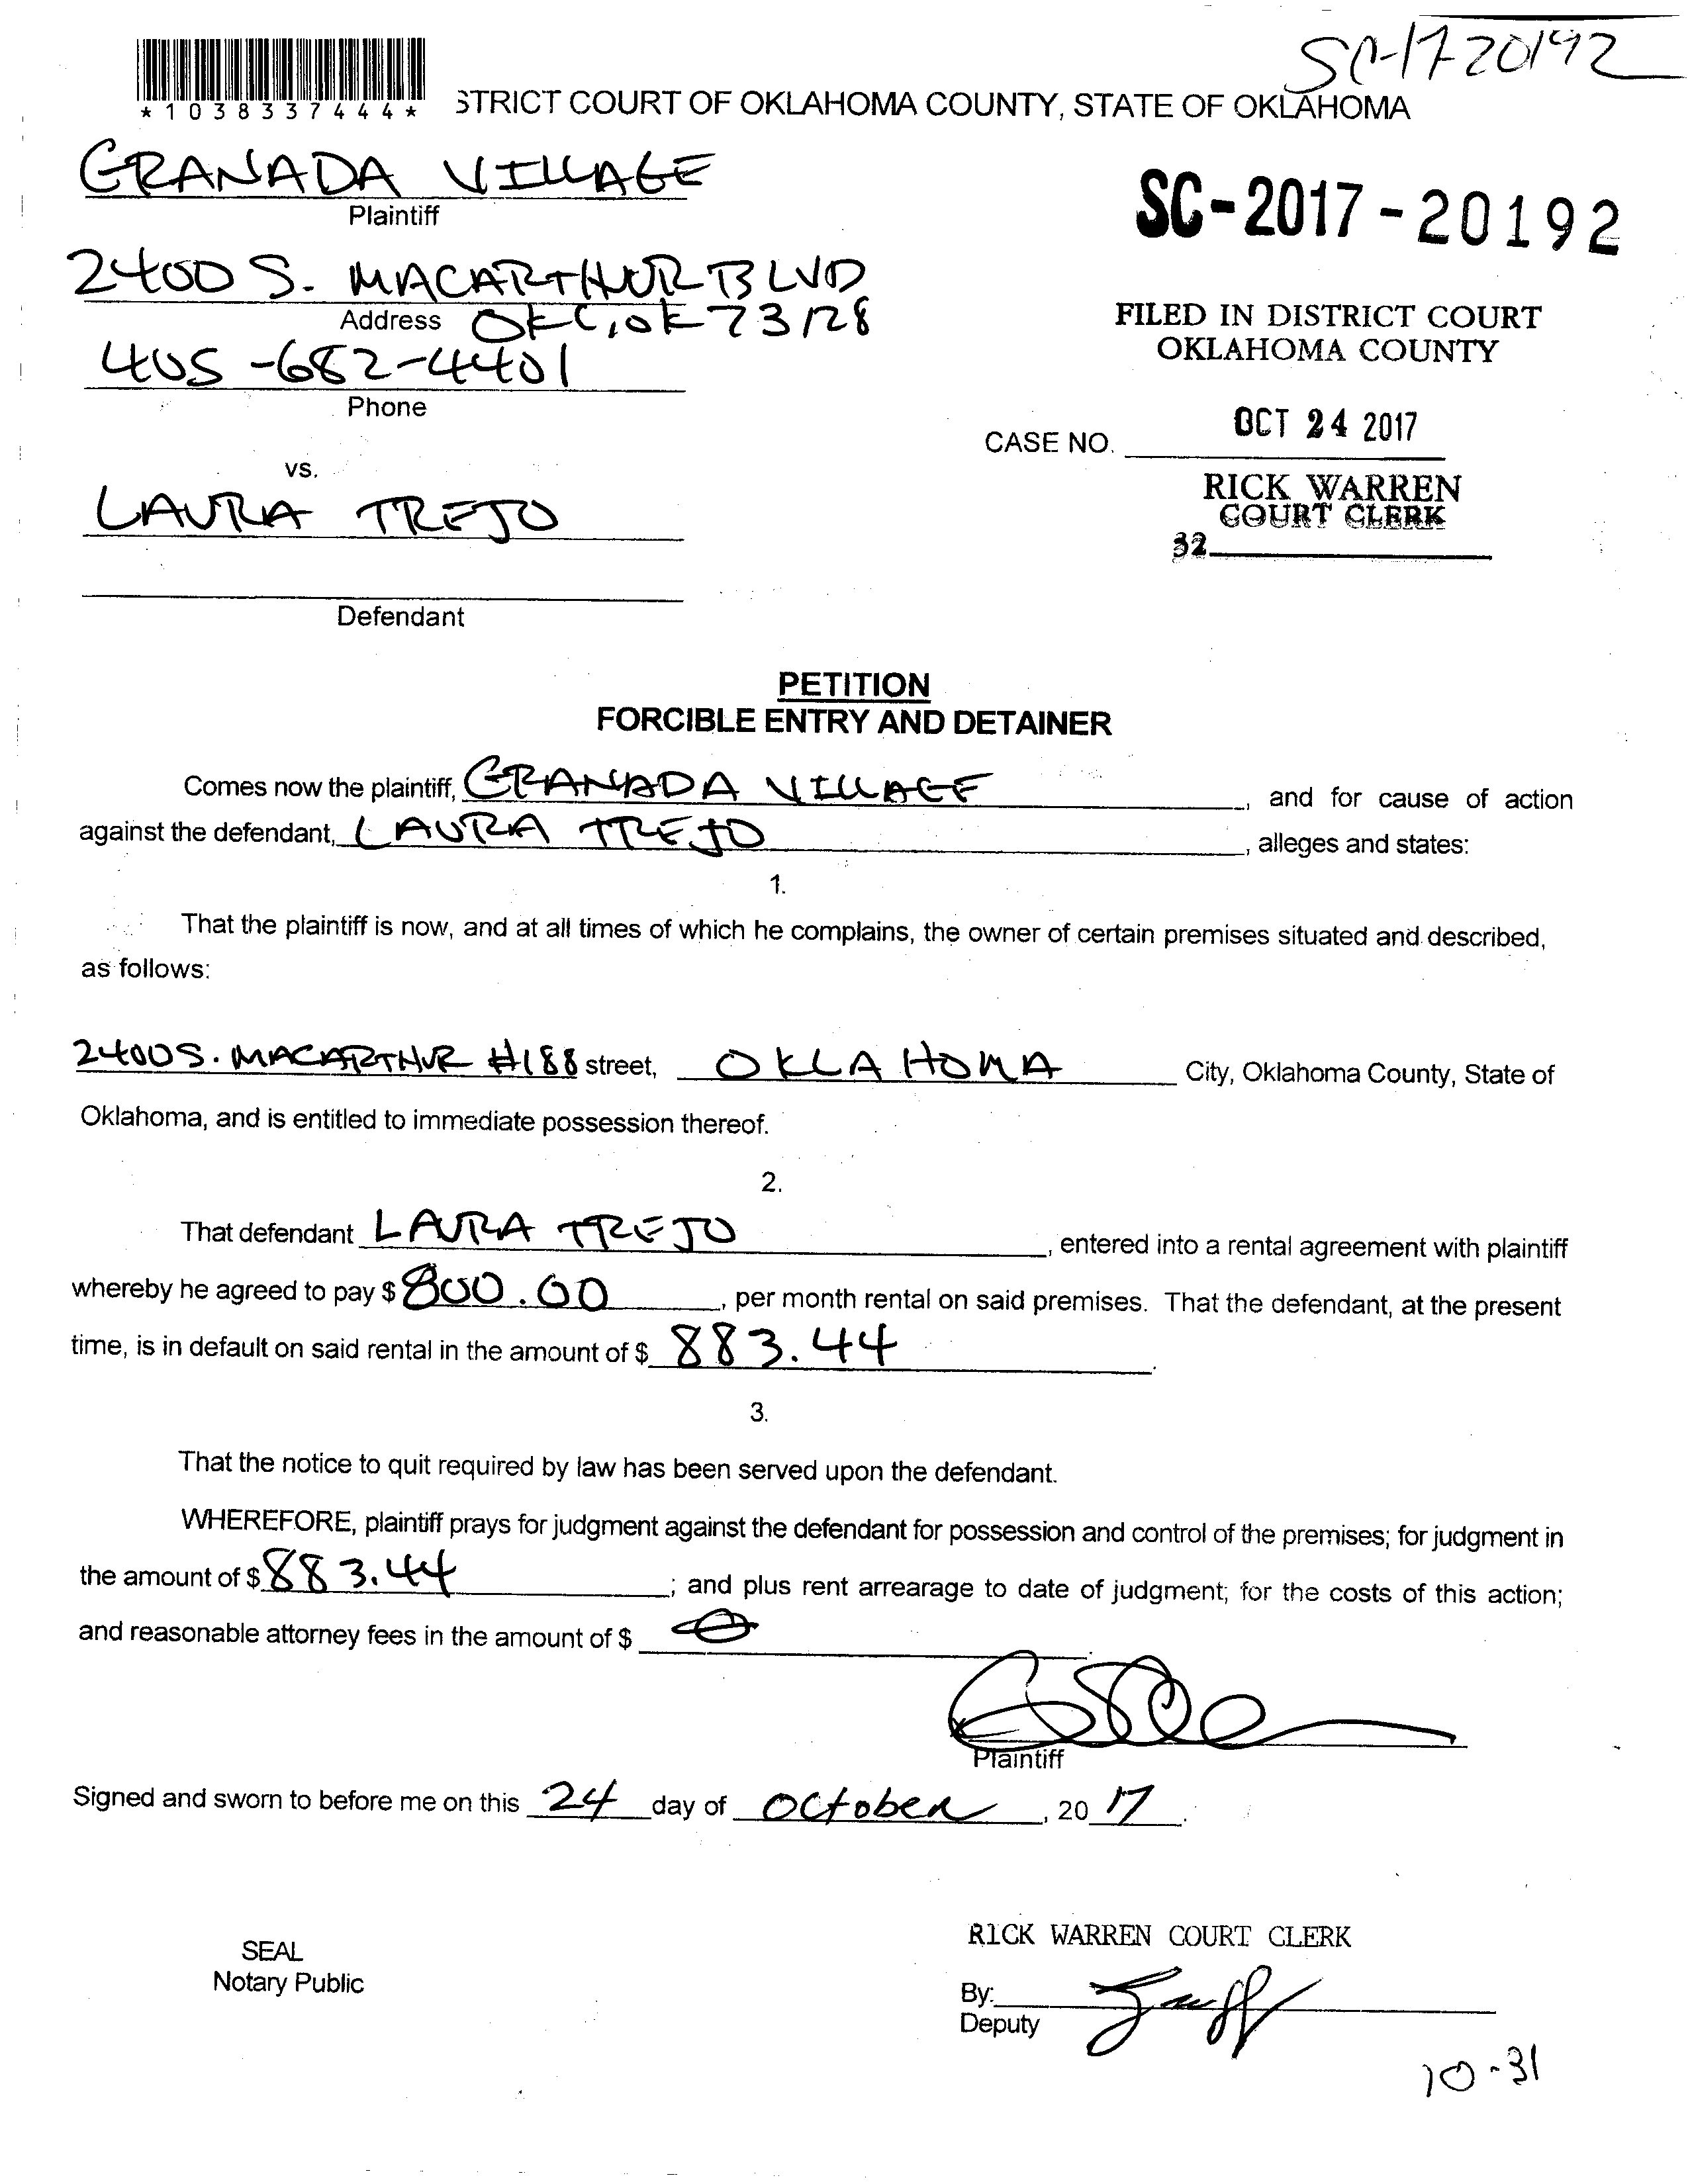 SC-17-20192
*1038337444*
STRICT COURT OF OKLAHOMA COUNTY, STATE OF OKLAHOMA
GRANADA VILLAGE
Plaintiff
SC-2017-20192
2400 S. MACARTHUR BLVD
Address OKC, OK 73128
FILED IN DISTRICT COURT
OKLAHOMA COUNTY
405-682-4401
Phone
OCT 24 2017
CASE NO.
vs.
RICK WARREN
COURT CLERK
LAURA TREJO
32
Defendant
PETITION
FORCIBLE ENTRY AND DETAINER
Comes now the plaintiff, GRANADA VILLAGE, and for cause of action
against the defendant, LAURA TREJO, alleges and states:
1.
That the plaintiff is now, and at all times of which he complains, the owner of certain premises situated and described,
as follows:
2400 S. MACARTHUR #188 street, OKLAHOMA City, Oklahoma County, State of
Oklahoma, and is entitled to immediate possession thereof.
2.
That defendant LAURA TREJO, entered into a rental agreement with plaintiff
whereby he agreed to pay $ 800.00, per month rental on said premises. That the defendant, at the present
time, is in default on said rental in the amount of $ 883.44.
3.
That the notice to quit required by law has been served upon the defendant.
WHEREFORE, plaintiff prays for judgment against the defendant for possession and control of the premises; for judgment in
the amount of $ 883.44; and plus rent arrearage to date of judgment; for the costs of this action;
and reasonable attorney fees in the amount of $
Plaintiff
Signed and sworn to before me on this 24 day of October, 20 17.
RICK WARREN COURT CLERK
SEAL
Notary Public
By:
Deputy
10-31